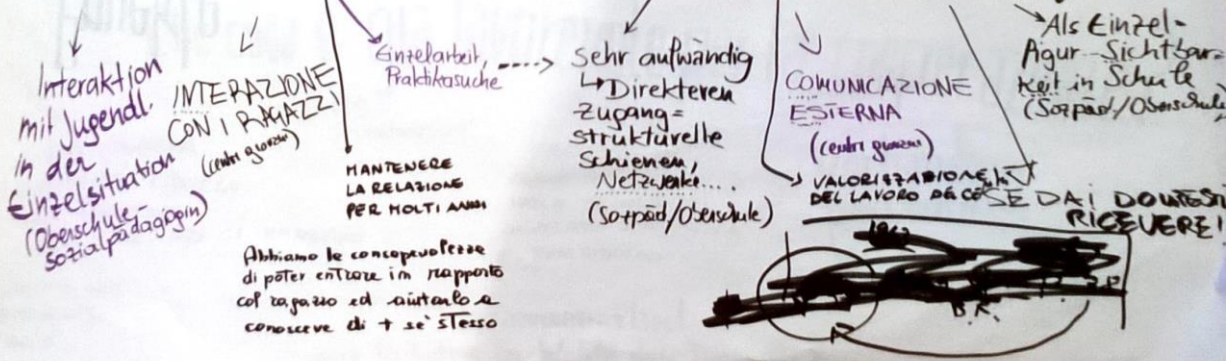 Interaktion
mit Jugendl.
in der
Einzelsituation
(Oberschule-
Sozialpädagogin)
INTERAZIONE
CON I RAGAZZI
(centri giovani)
MANTENERE
LA RELAZIONE
PER MOLTI ANNI
Abbiamo la consapevolezza
di poter entrare in rapporto
col ragazzo ed aiutarlo a
conoscere di + se' stesso
Einzelarbeit,
Praktikasuche
sehr aufwändig
Direkteren
Zugang =
strukturelle
Schienen,
Netzwerke....
(Sozpäd/Oberschule)
COMUNICAZIONE
ESTERNA
(centri giovani)
VALORIZZAZIONE
DEL LAVORO
SE DAI
RICEVERE!
B.R.
Als Einzel-
figur Sichtbar-
keit in Schule
(Sozpäd/Oberschule)